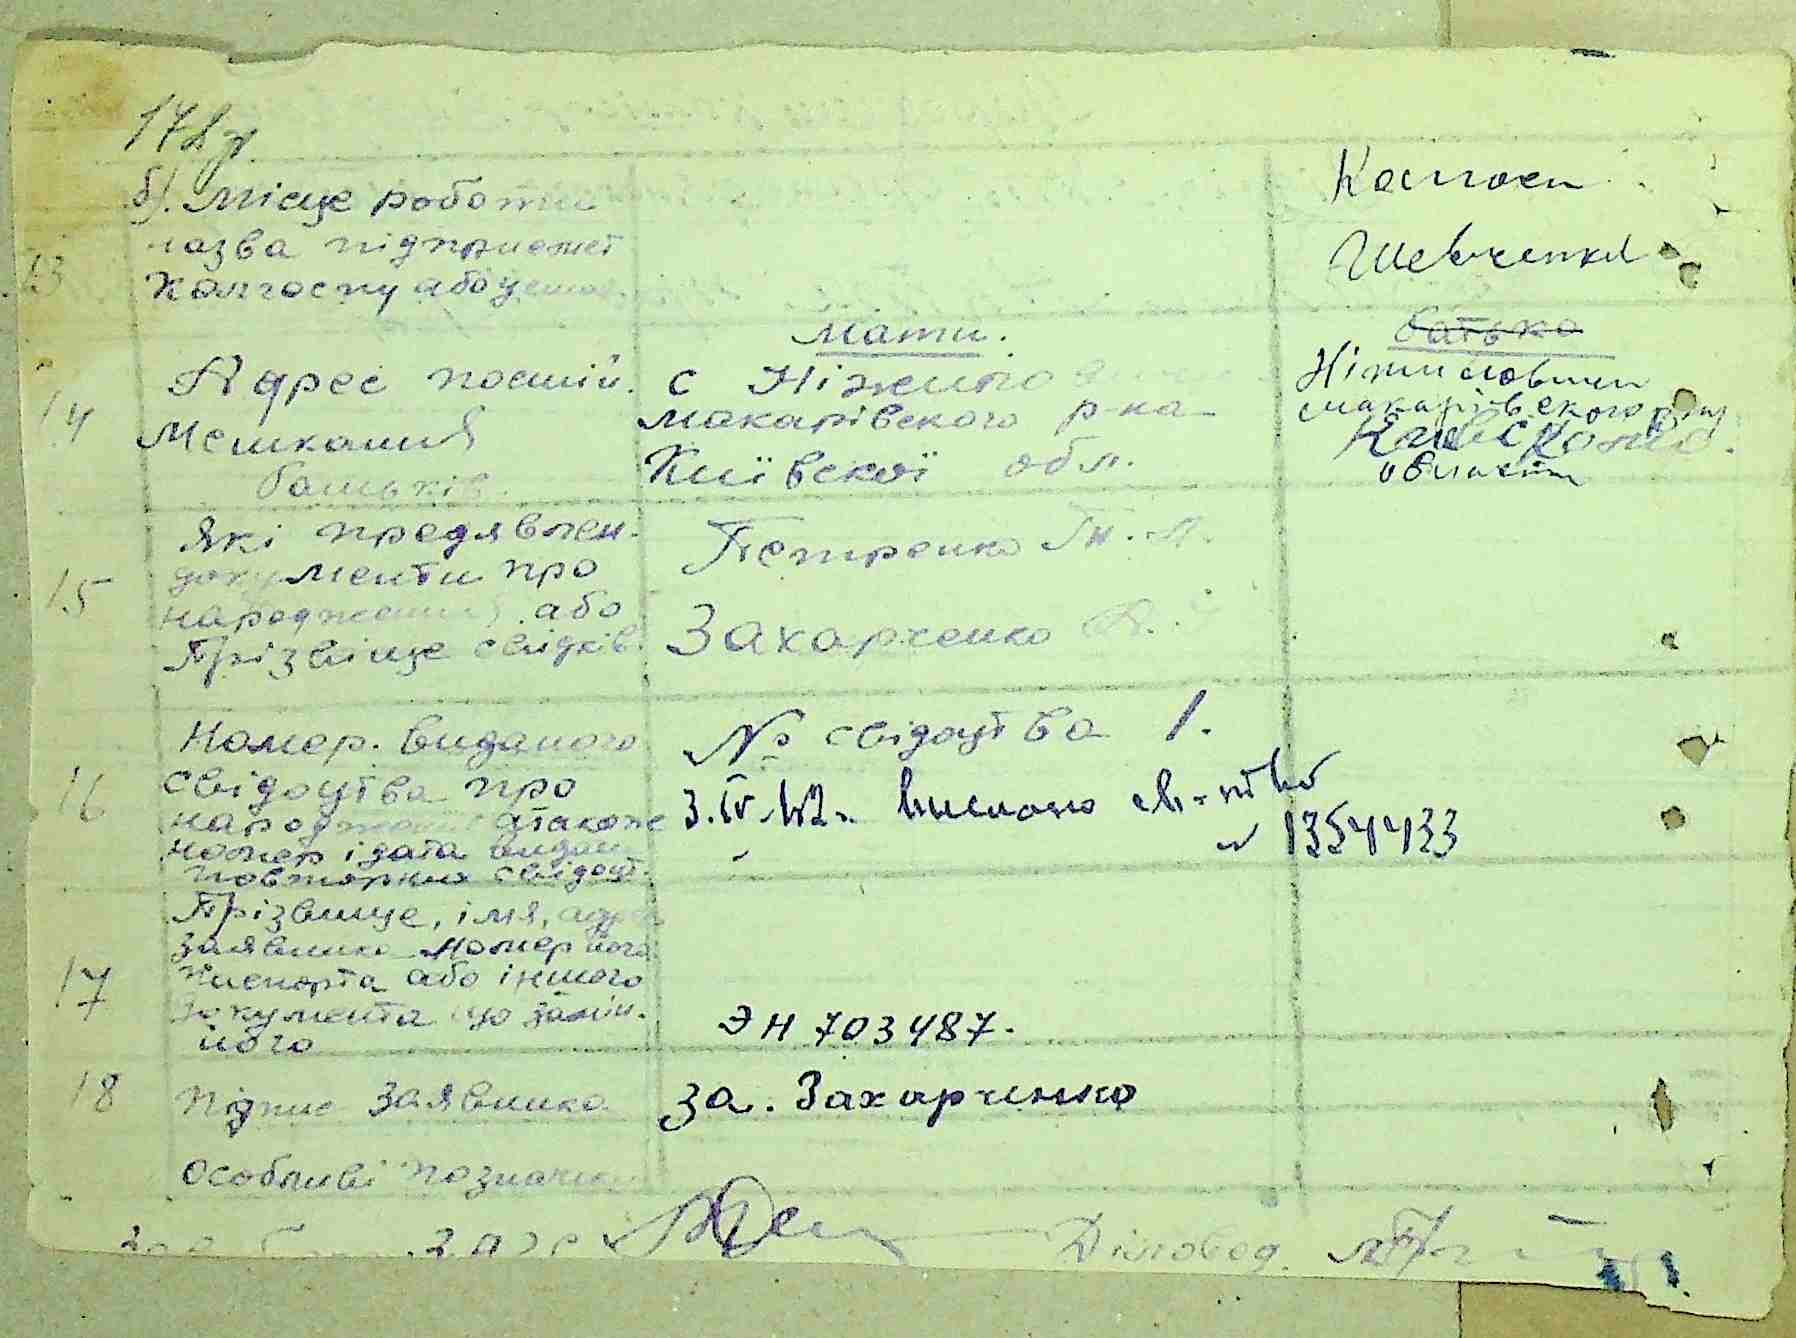 13
б). Місце роботи
назва підприємст
колгоспу або устан.
Колгосп
Шевченка
14
Адрес постій.
мешкання
батьків.
Мати.
с Ніжиловичі
макарівского р-на
Київскої обл.
батько
Ніжиловичи
макарівского р-ну
Київскої
области
15
Які предявлен.
документи про
народження або
Прізвище свідків
Петренко
Захарченко
16
Номер. виданого
свідоцтва про
народжен. атакоже
номер і дата видач
повторних свідоцт.
№ свідоцтва 1.
3.IV.42. Вислано св-тво
№ 1354433
17
Прізвище, імя, адрес
заявника номер його
паспорта або іншого
документа що замін.
його
ЭН 703487.
18
Підпис заявника
За. Захарченко
Особливі позначки
Діловод.